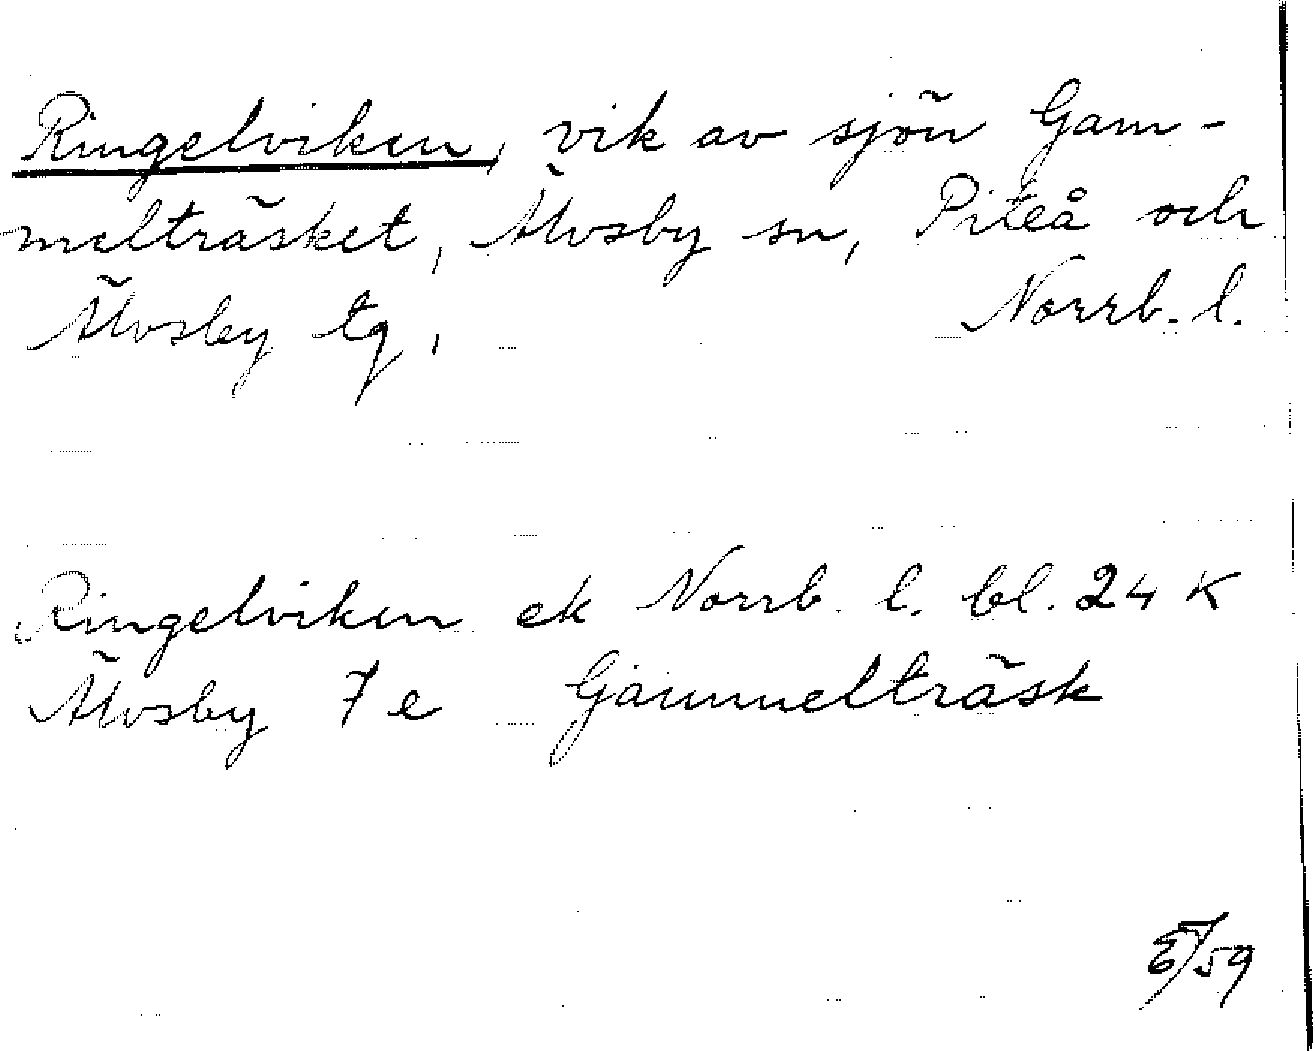 Ringelviken, vik av sjön Gam-
melträsket, Älvsby sn, Piteå och
Älvsby tg, Norrb. l.
Ringelviken ek Norrb. l. bl. 24 K
Älvsby 7 e Gammelträsk